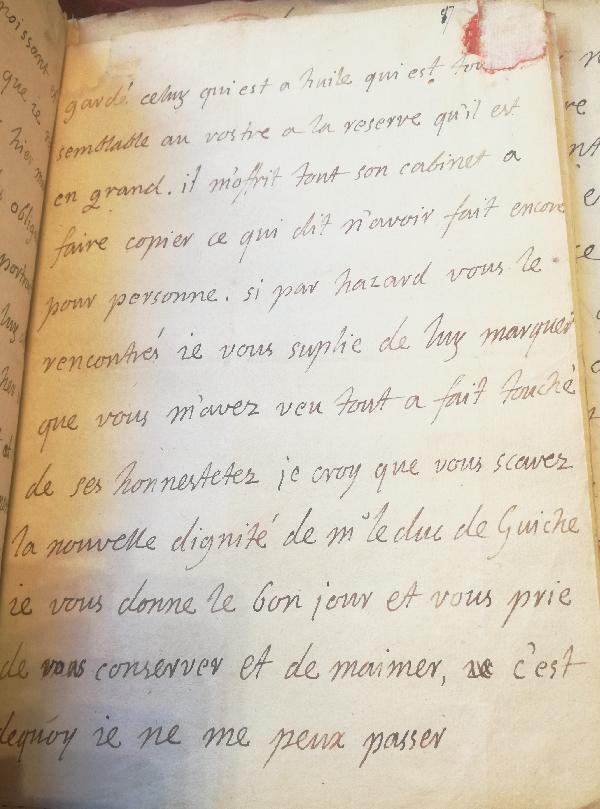 gardé celuy qui est a huile qui est
semblable au vostre a la reserve qu'il est
en grand. il m'offrit tout son cabinet a
faire copier ce qui dit n'avoir fait encore
pour personne. si par hazard vous le
rencontrés ie vous suplie de luy marquer
que vous m'avez veu tout a fait touché
de ses honnestetez je croy que vous scavez
la nouvelle dignité de mr le duc de Guiche
ie vous donne le bon jour et vous prie
de vous conserver et de maimer, c'est
dequoy ie ne me peux passer